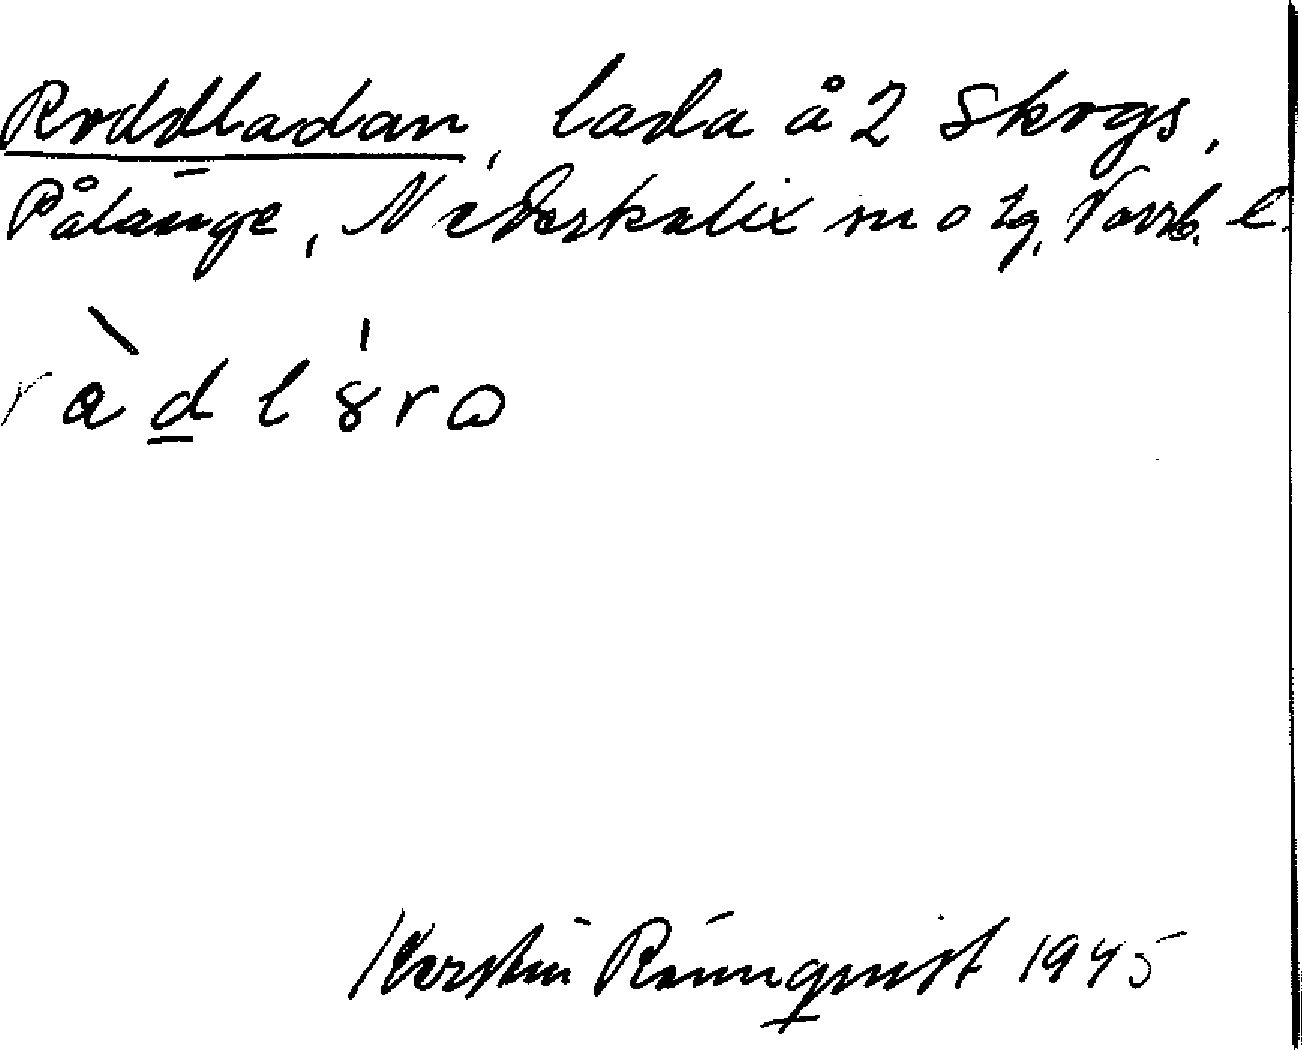 Roddladan, lada å 2 Skogs,
Pålänge, Nederkalix sn o tg, Norrb. l.
Kerstin Rönnquist 1945